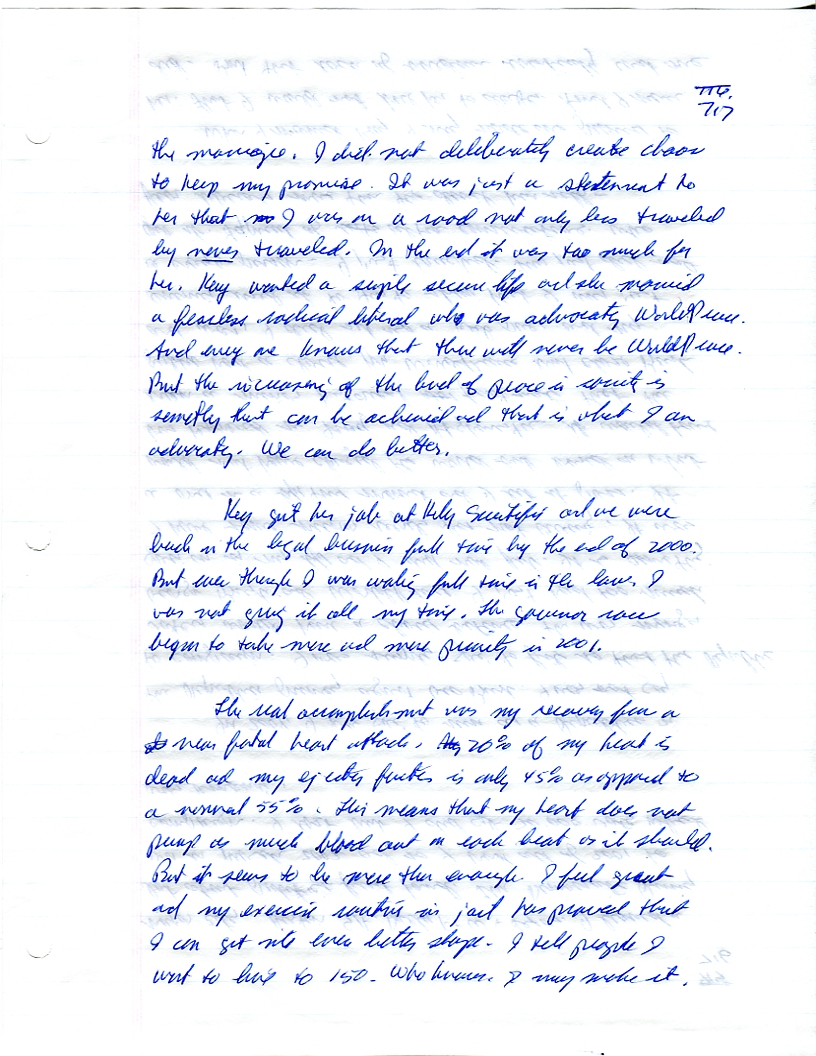 716.
717
the marriage. I did not deliberately create chaos
to keep my promise. It was just a statement to
her that I was on a road not only less traveled
by never traveled. In the end it was too much for
her. Kay wanted a simple secure life and she married
a fearless radical liberal who was advocating World Peace.
And every one knows that there will never be World Peace.
But the increasing of the level of peace in society is
something that can be achieved and that is what I am
advocating. We can do better.
Kay got her job at Kelly Scientific and we were
back in the legal business full time by the end of 2000.
But even though I was working full time in the law I
was not giving it all my time. The governor race
began to take more and more priority in 2001.
The real accomplishment was my recovery from a
near fatal heart attack. 20% of my heart is
dead and my ejection fraction is only 45% as opposed to
a normal 55%. This means that my heart does not
pump as much blood out on each beat as it should.
But it seems to be more than enough. I feel great
and my exercise routine in jail has proved that
I can get into even better shape. I tell people I
want to live to 150. Who knows. I may make it.